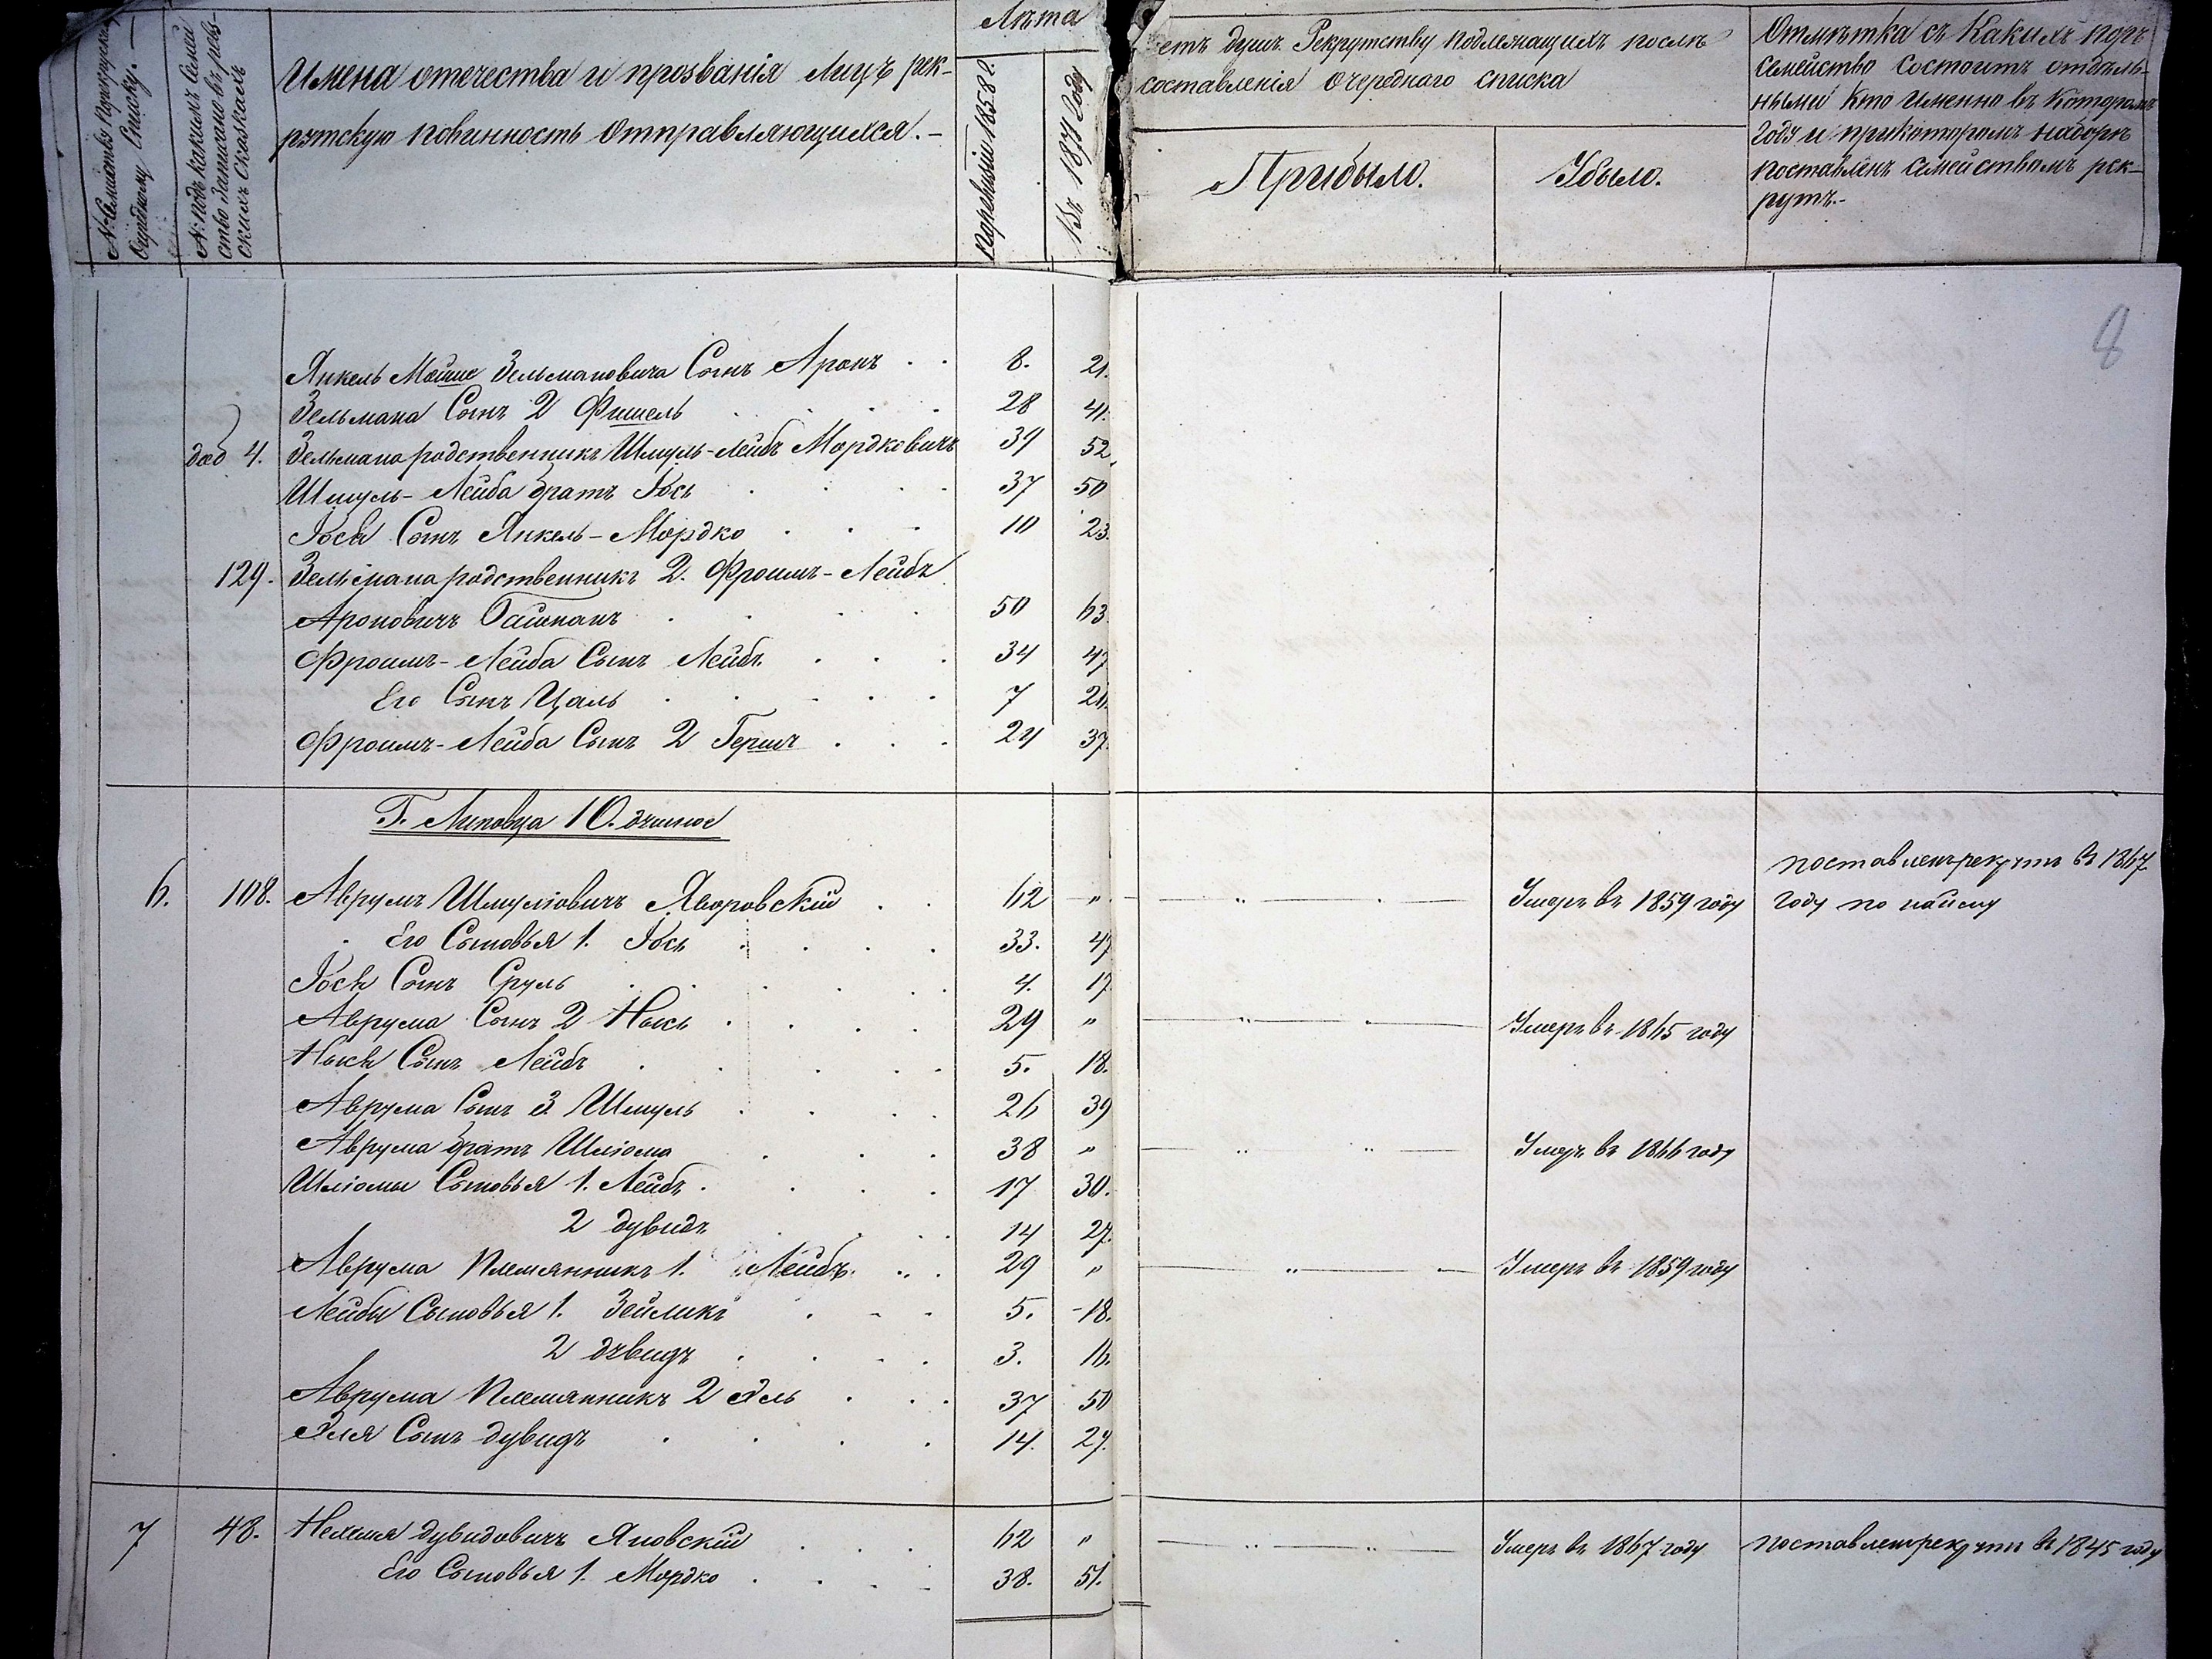 № Семейства Порекрутскому
Очередному Списку. —
№ подъ какимъ Семей
ство записано въ реви-
скихъ Сказкахъ
Имена отечества и прозванія Лицъ рек-
рутскую повинность Отправляющихся. -
Лѣта
Поревизіи 1858 г.
Въ 1871 Году
етъ душъ Рекрутству подлежащихъ послѣ
составленія Очереднаго списка
Прибыло.
Убыло.
Отмѣтка съ Какихъ поръ
Семейство Состоитъ отдѣль-
нымъ Кто Именно въ Которомъ
Году и прикоторомъ наборѣ
поставленъ Семействомъ рек-
рутъ.-
8
Янкель Мойше Зельмановича Сынъ Аронъ . . 8. 21.
Зельмана Сынъ 2 Фишель . . . . 28 41.
дод 4. Зельмана родственникъ Шмуль-Лейбъ Мордковичъ 39 52.
Шмуль-Лейба братъ Іось . . . . 37 50
Іося Сынъ Янкель-Мордко . . . 10 23.
129. Зельмана родственникъ 2. Фроимъ-Лейбъ
Ароновичъ Байтманъ . . . . 50 63.
Фроимъ-Лейба Сынъ Лейбъ . . . 34 47
Его Сынъ Цаль . . . . . 7 20.
Фроимъ-Лейба Сынъ 2 Гершъ . . . 24 37.
Г. Липовца 10. душное
6. 108. Аврумъ Шмуліовичъ Яворовскій . . 62 " — " — . — Умеръ въ 1859 году поставленъ рекрутъ въ 1867
Году по найму
Его Сыновья 1. Іось . . . . 33. 47
Іося Сынъ Сруль . . . . . 4. 17
Аврума Сынъ 2 Нысь . . . . 29 " — " — . — Умеръ въ 1865 году
Ныся Сынъ Лейбъ . . . . . 5. 18.
Аврума Сынъ 3 Шмуль . . . . 26 39
Аврума братъ Шліома . . . 38 " — " — " — Умеръ въ 1866 году
Шліомы Сыновья 1. Лейбъ . . . . 17 30.
2 дувидъ . . . . 14 27.
Аврума Племянникъ 1. Лейбъ . . . 29 " — " — . — Умеръ въ 1859 году
Лейбы Сыновья 1. Зейликъ . . . 5. 18.
2 дувидъ . . . . 3. 16.
Аврума Племянникъ 2 Эль . . . 37 50
Эля Сынъ дувидъ . . . . 14. 27.
7 48. Нехемя дувидовичъ Яновскій . . . 62 " — " — " — Умеръ въ 1867 году поставленъ рекрутъ въ 1845 году
Его Сыновья 1. Мордко . . . . 38. 51.